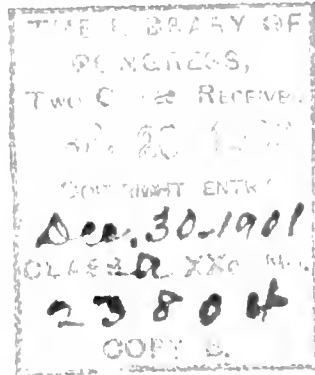 THE LIBRARY OF
CONGRESS,
TWO COPIES RECEIVED
COPYRIGHT ENTRY
Dec. 30-1901
CLASS a XXc. No.
23804
COPY B.